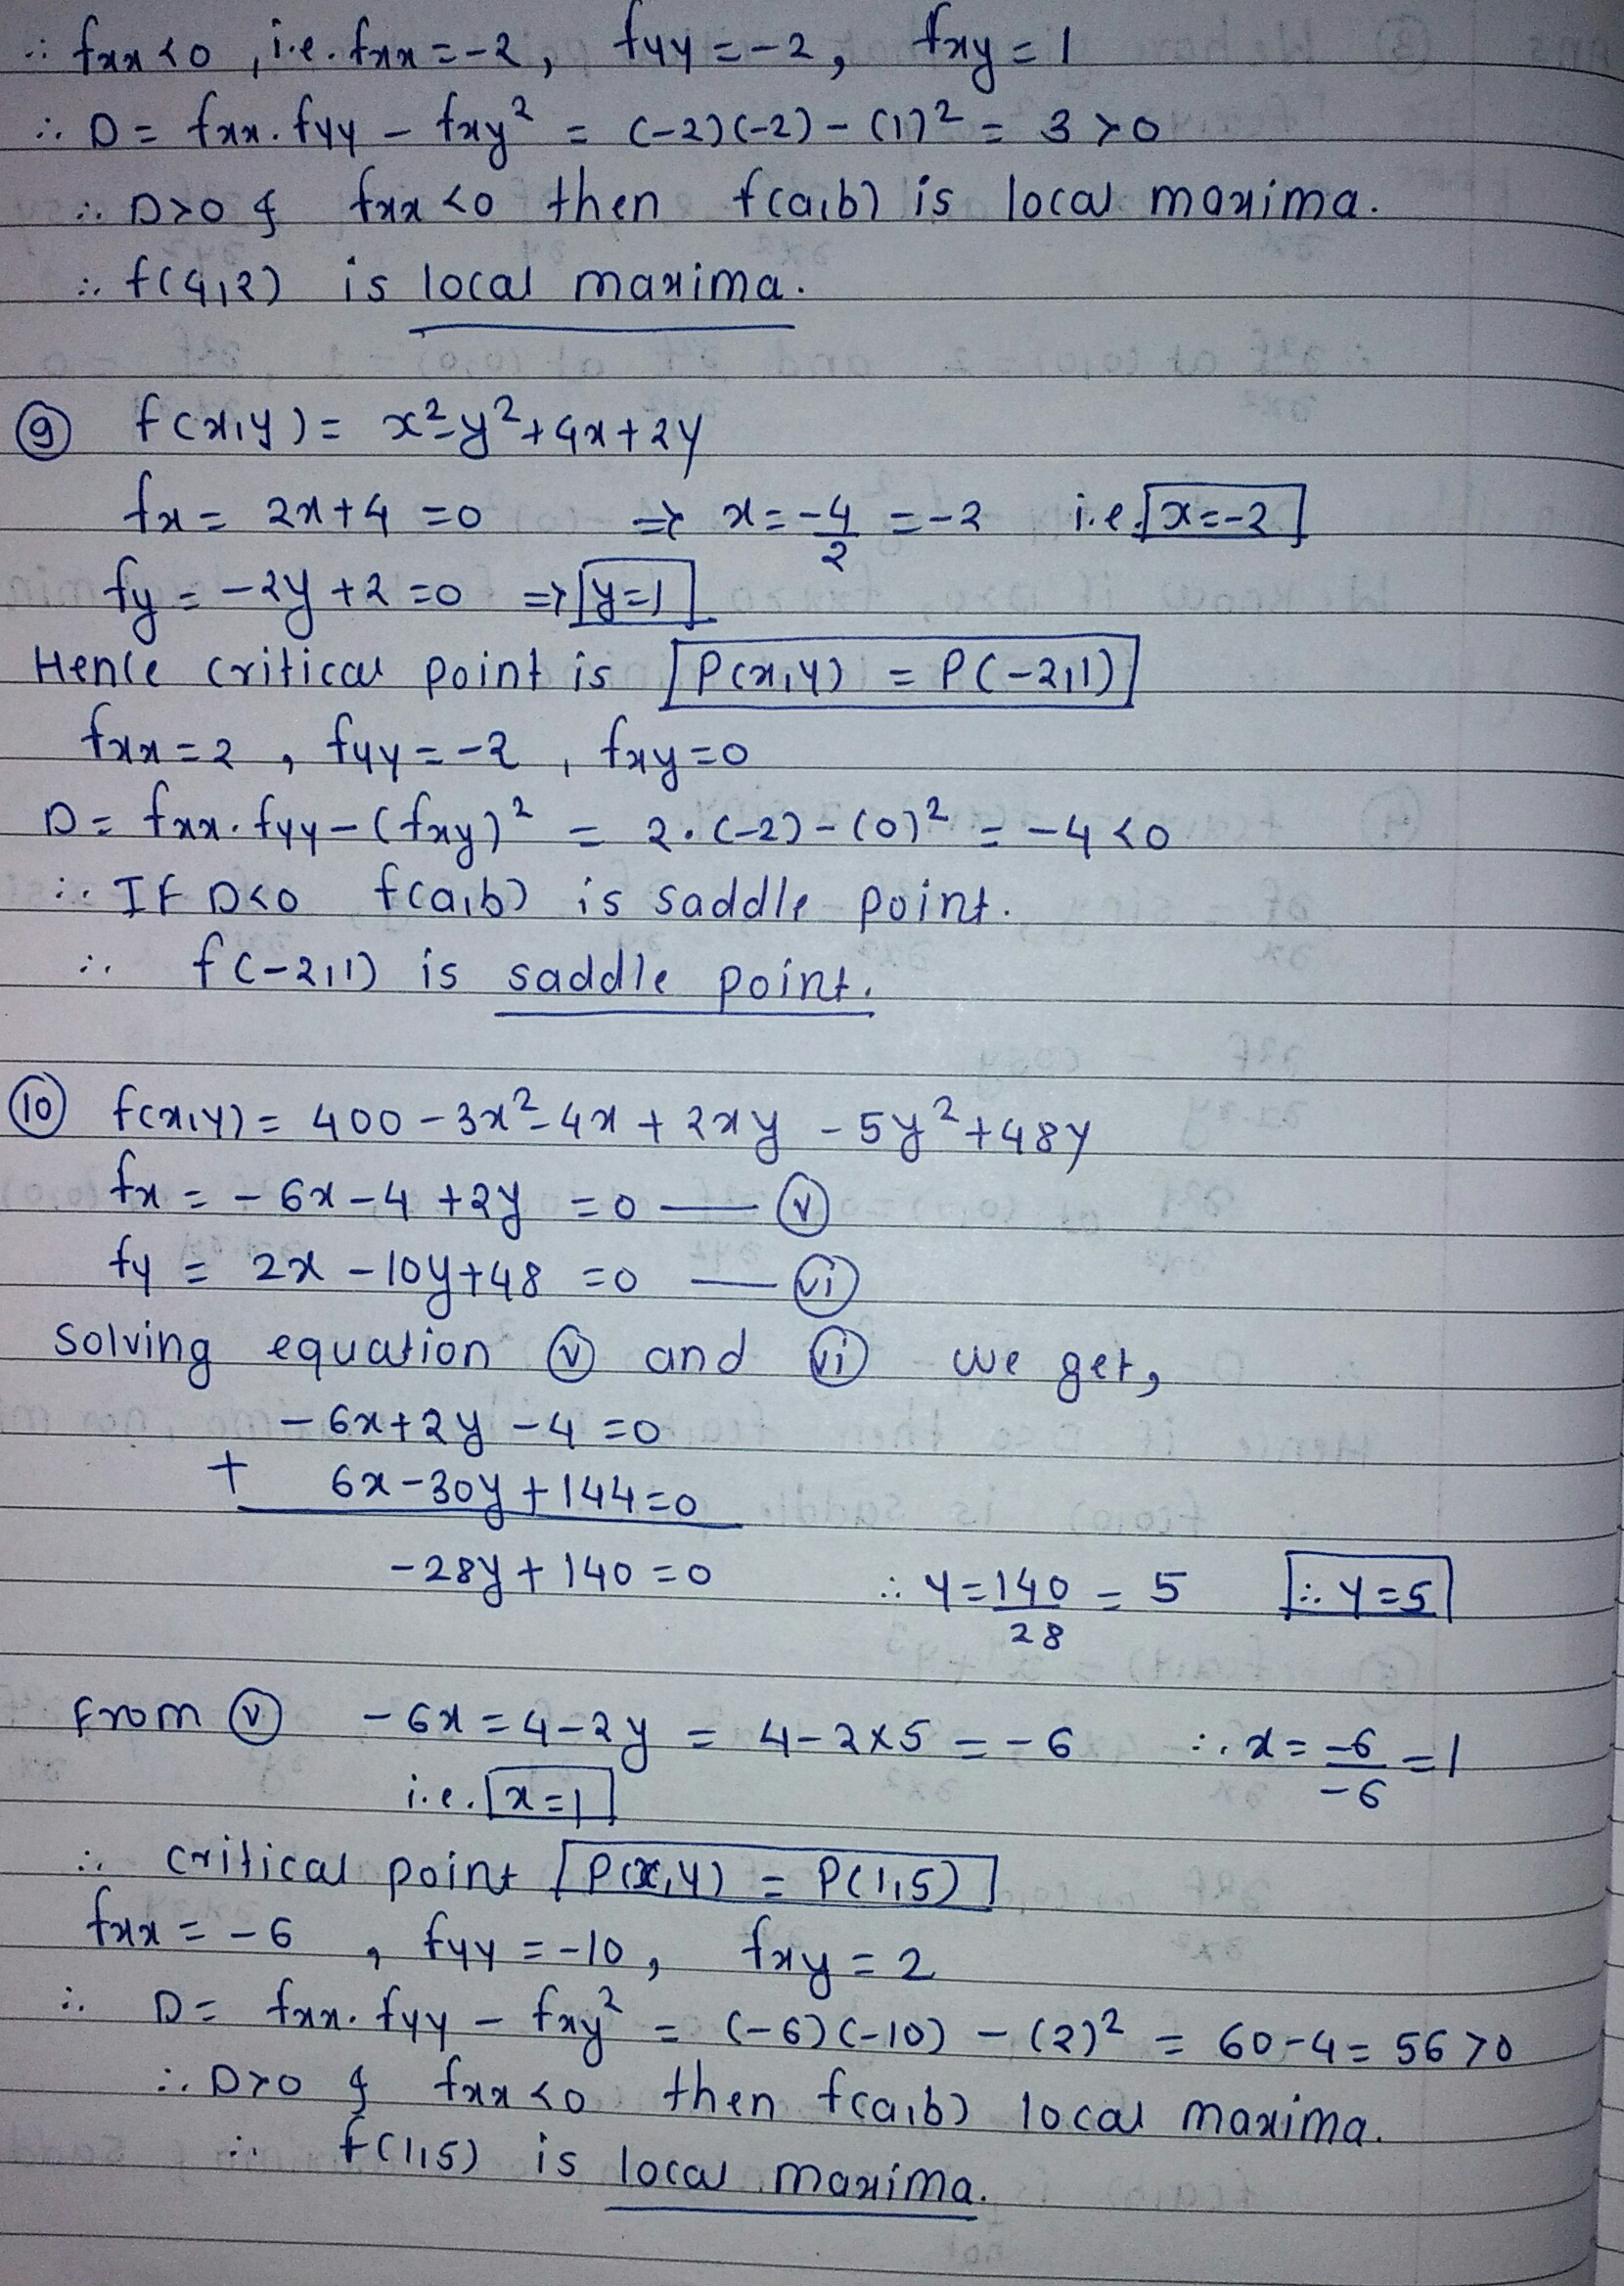 ∴ fxx<0, i.e. fxx=-2, fyy=-2, fxy=1
∴ D= fxx.fyy - fxy² = (-2)(-2)-(1)² = 3>0
∴ D>0 & fxx<0 then f(a,b) is local maxima.
∴ f(4,2) is local maxima.
⑨ f(x,y)= x²-y²+4x+2y
fx= 2x+4=0 ⇒ x=-4/2=-2 i.e. x=-2
fy=-2y+2=0 ⇒ y=1
Hence critical point is P(x,y) = P(-2,1)
fxx=2, fyy=-2, fxy=0
D= fxx.fyy-(fxy)² = 2.(-2)-(0)² = -4<0
∴ If D<0 f(a,b) is saddle point.
∴ f(-2,1) is saddle point.
⑩ f(x,y)= 400-3x²-4x+2xy-5y²+48y
fx=-6x-4+2y=0 — ⓥ
fy = 2x-10y+48=0 — (vi)
Solving equation ⓥ and (vi) we get,
-6x+2y-4=0
+ 6x-30y+144=0
-28y+140=0 ∴ y=140/28=5 ∴ y=5
From ⓥ -6x=4-2y = 4-2×5=-6 ∴ x=-6/-6=1
i.e. x=1
∴ critical point P(x,y) = P(1,5)
fxx=-6, fyy=-10, fxy=2
∴ D= fxx.fyy - fxy² = (-6)(-10)-(2)² = 60-4=56>0
∴ D>0 & fxx<0 then f(a,b) local maxima.
∴ f(1,5) is local maxima.